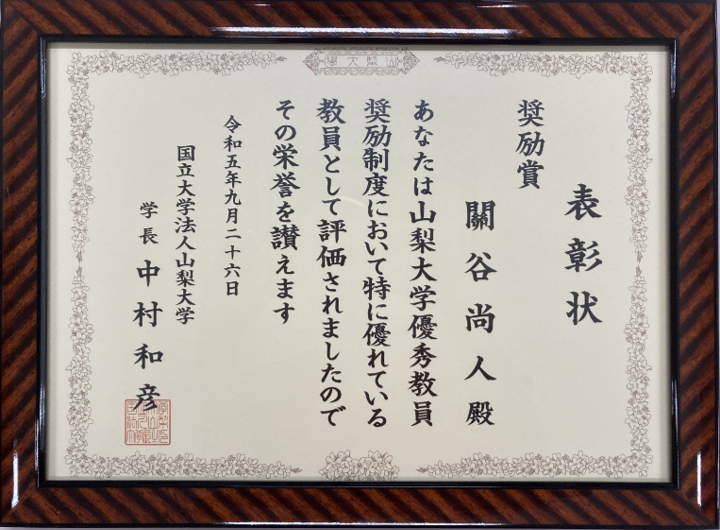 表彰状
奨励賞
關谷尚人殿
あなたは山梨大学優秀教員
奨励制度において特に優れている
教員として評価されましたので
その栄誉を讃えます
令和五年九月二十六日
国立大学法人山梨大学
学長 中村和彦